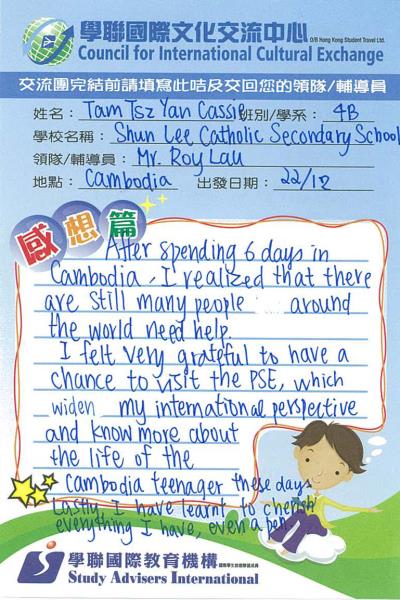 學聯國際文化交流中心 O/B Hong Kong Student Travel Ltd.
Council for International Cultural Exchange
交流團完結前請填寫此咭及交回您的領隊/輔導員
姓名：Tam Tsz Yan Cassie 班別/學系：4B
學校名稱：Shun Lee Catholic Secondary School
領隊/輔導員：Mr. Roy Lau
地點：Cambodia 出發日期：22/12
感想篇
After spending 6 days in
Cambodia, I realized that there
are still many people around
the world need help.
I felt very grateful to have a
chance to visit the PSE, which
widen my international perspective
and know more about
the life of the
Cambodia teenager these days.
Lastly, I have learnt to cherish
everything I have, even a pen.
學聯國際教育機構
Study Advisers International